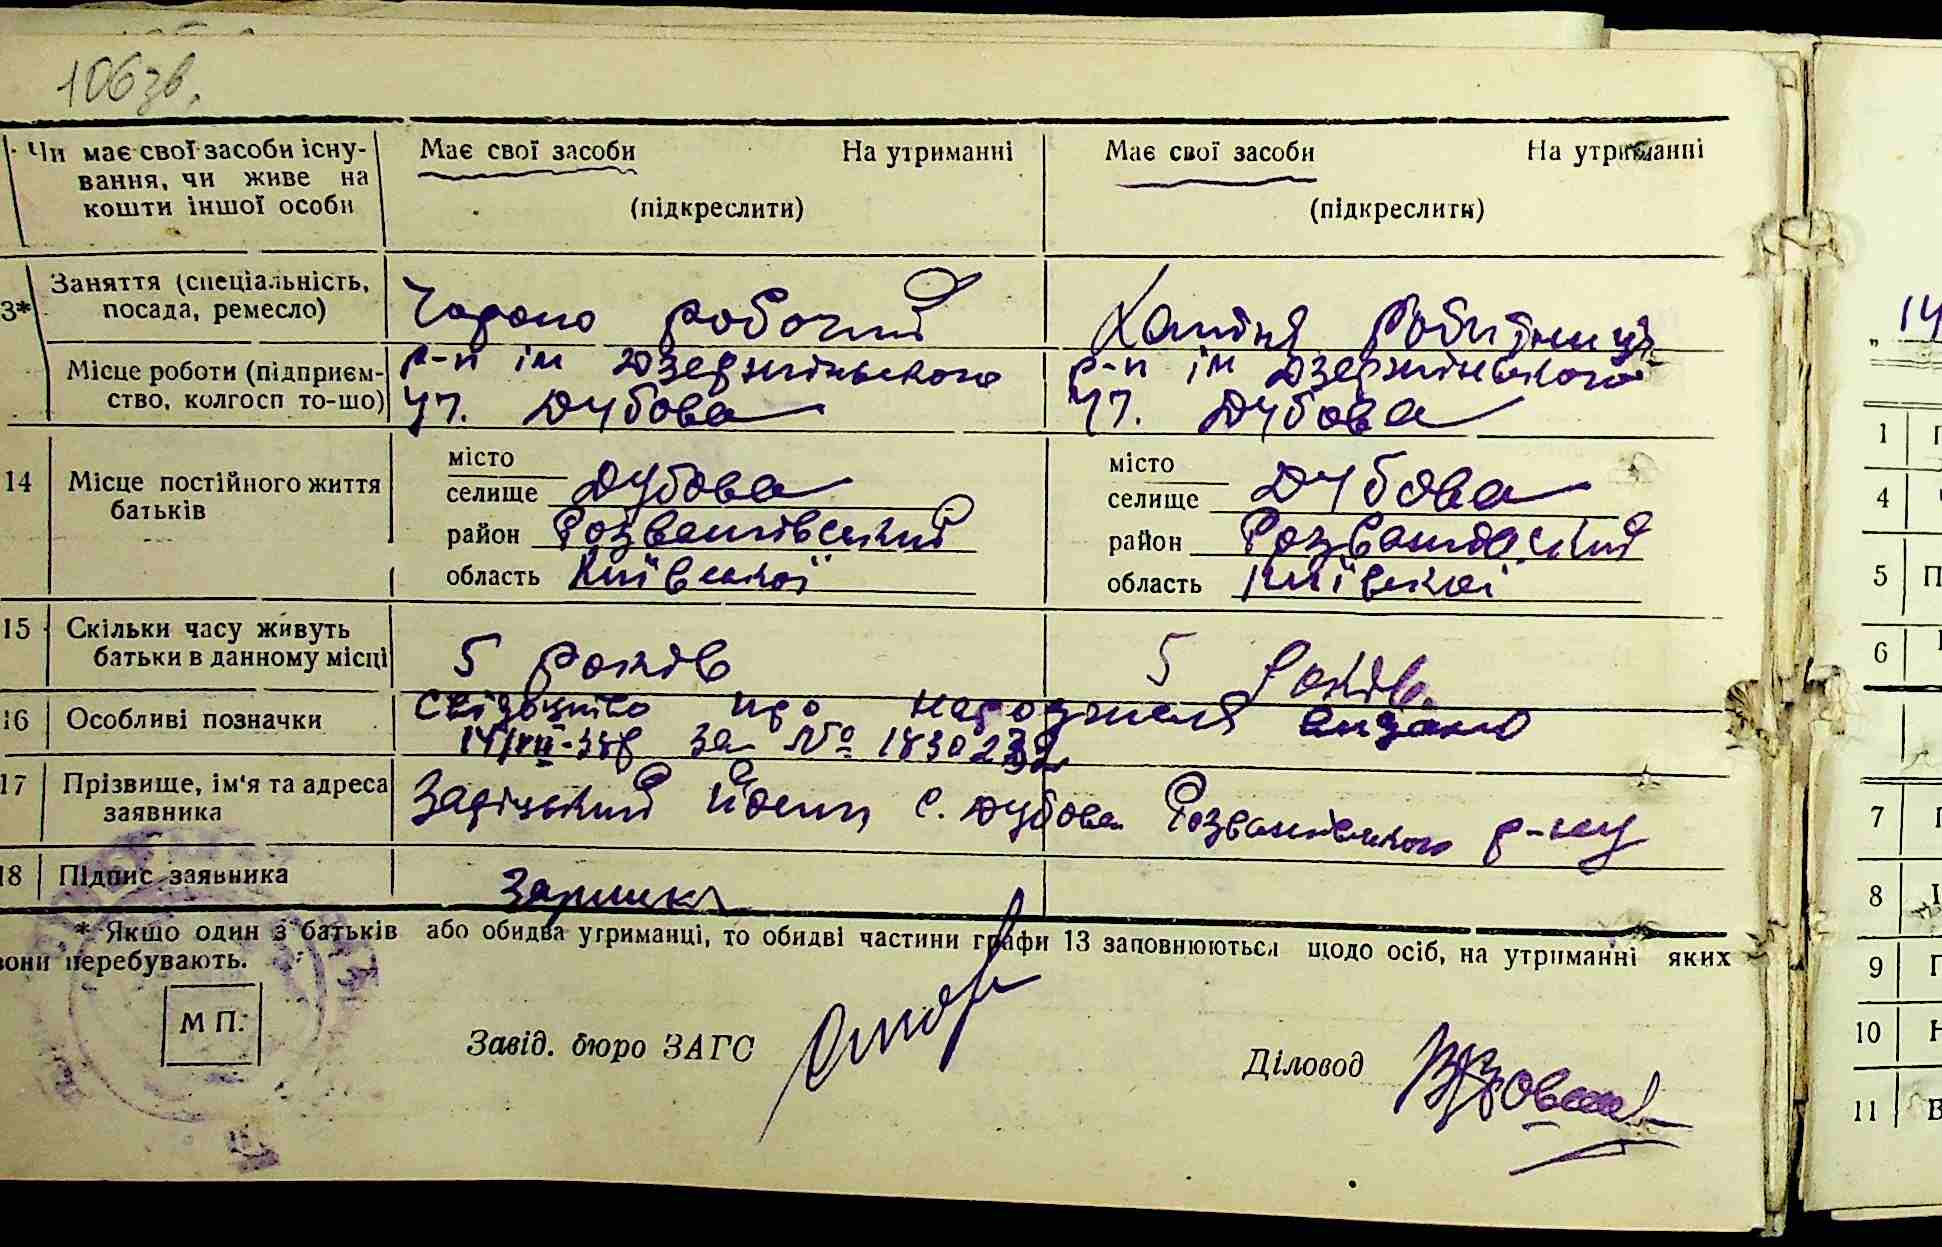 106зв.
Чи має свої засоби існування, чи живе на кошти іншої особи
Має свої засоби На утриманні
(підкреслити)
Має свої засоби На утриманні
(підкреслити)
3*
Заняття (спеціальність, посада, ремесло)
робочий
Хатня робітниця
Місце роботи (підприємство, колгосп то-що)
р-п ім Дзержінського
Уч. Дубова
р-п ім Дзержінського
Уч. Дубова
14 Місце постійного життя батьків
місто
селище Дубова
район Розважівський
область Київської
місто
селище Дубова
район Розважівський
область Київської
15 Скільки часу живуть батьки в данному місці
5 років
5 років
16 Особливі позначки
свідоцтво про народження видано
14/VII-38р за №
17 Прізвище, ім'я та адреса заявника
с. Дубова Розважівського р-ну
18 Підпис заявника
* Якшо один з батьків або обидва утриманці, то обидві частини графи 13 заповнюються щодо осіб, на утриманні яких
вони перебувають.
М П.
Завід. бюро ЗАГС
Діловод
14
1
4
5
6
7
8
9
10
11